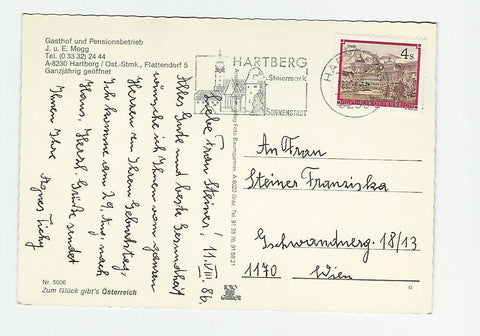 Gasthof und Pensionsbetrieb
J. u. E. Mogg
Tel. (0 33 32) 24 44
A-8230 Hartberg / Ost.-Stmk., Flattendorf 5
Ganzjährig geöffnet
HARTBERG
Steiermark
SONNENSTADT
4 S
REPUBLIK ÖSTERREICH
Liebe Frau Steiner! 11.VIII.86.
Alles Gute und beste Gesundheit
wünsche ich Ihnen vom ganzen
Herzen zu Ihrem Geburtstag.
Ich komme am 29. Aug. nach
Haus, Herzl. Grüße sendet
Ihnen Ihre Agnes Tichy
Foto Baumgartner, A-8020 Graz, Tel.
An Frau
Steiner Franziska
Gschwandnerg. 18/13
1170 Wien
Nr. 5006
Zum Glück gibt's Österreich